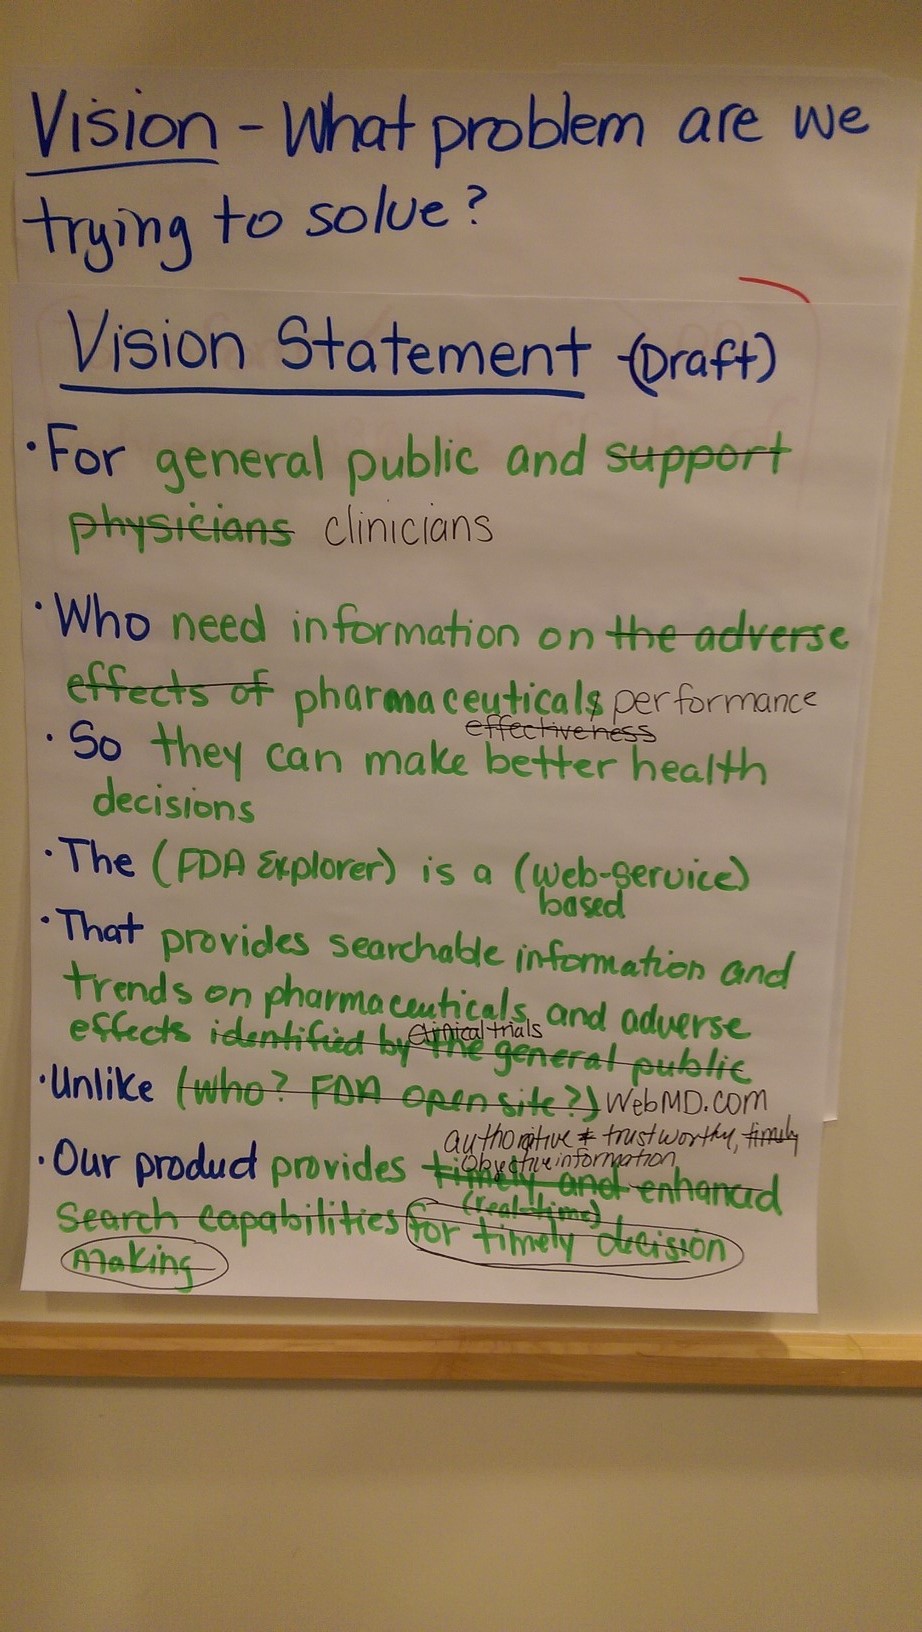 Vision - What problem are we
trying to solve?
Vision Statement (Draft)
• For general public and support
physicians clinicians
• Who need information on the adverse
effects of pharmaceuticals performance
effectiveness
• So they can make better health
decisions
• The (FDA Explorer) is a (web-service)
based
• That provides searchable information and
trends on pharmaceuticals and adverse
clinical trials
effects identified by the general public
• Unlike (who? FDA open site?) WebMD.com
authoritive & trustworthy, timely
objective information
• Our product provides timely and enhanced
(real-time)
search capabilities for timely decision
making